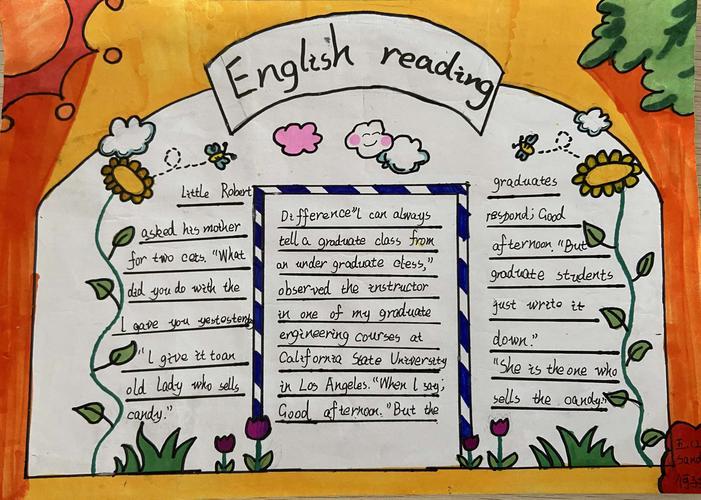 English reading
Little Robert
asked his mother
for two cets. "What
did you do with the
I gave you yestesterd
"I give it toan
old Lady who sells
candy."
Difference"I can always
tell a graduate class from
an under graduate ctess,"
observed the instructor
in one of my graduate
ergineering courses at
California State University
in Los Angeles. "When I say;
Good afternoon." But the
graduates
respond; Good
afternoon. "But
graduate students
just write it
down."
"She is the one who
sells the candy."